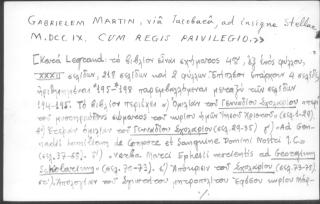 GABRIELEM MARTIN, viâ Iacobaeâ, ad insigne Stellae
M.DCC.IX. CUM REGIS PRIVILEGIO.»
Κατά Legrand: τό βιβλίον εἶναι σχήματος 4ου, ἐξ ἑνός φύλλου,
XXXII σελίδων, 218 σελίδων καί 2 φύλλων. Ἐπίσης ὑπάρχουν 4 σελίδες
ἀριθμημέναι 195-198 παρεμβαλλόμεναι μεταξύ τῶν σελίδων
194-195. Τό βιβλίον περιέχει α) Ὁμιλίαν τοῦ Γενναδίου Σχολαρίου περί
τοῦ μυστηριώδους σώματος τοῦ κυρίου ἡμῶν Ἰησοῦ Χριστοῦ» (σελ. 1-28).
β) Ἑτέραν ὁμιλίαν τοῦ Γενναδίου Σχολαρίου (σελ. 29-35) γ) «Ad Gen-
nadii homiliam de Corpore et Sanguine Domini Nostri J. C.»
(σελ. 37-69). δ) «Verba Marci Ephesii morientis ad Georgium
Scholarium» (σελ. 70-73). ε) Ἀπόκρισιν τοῦ Σχολαρίου (σελ. 73-75)
στ) τοῦ μητροπολίτου Ἐφέσου κυρίου Μάρ-